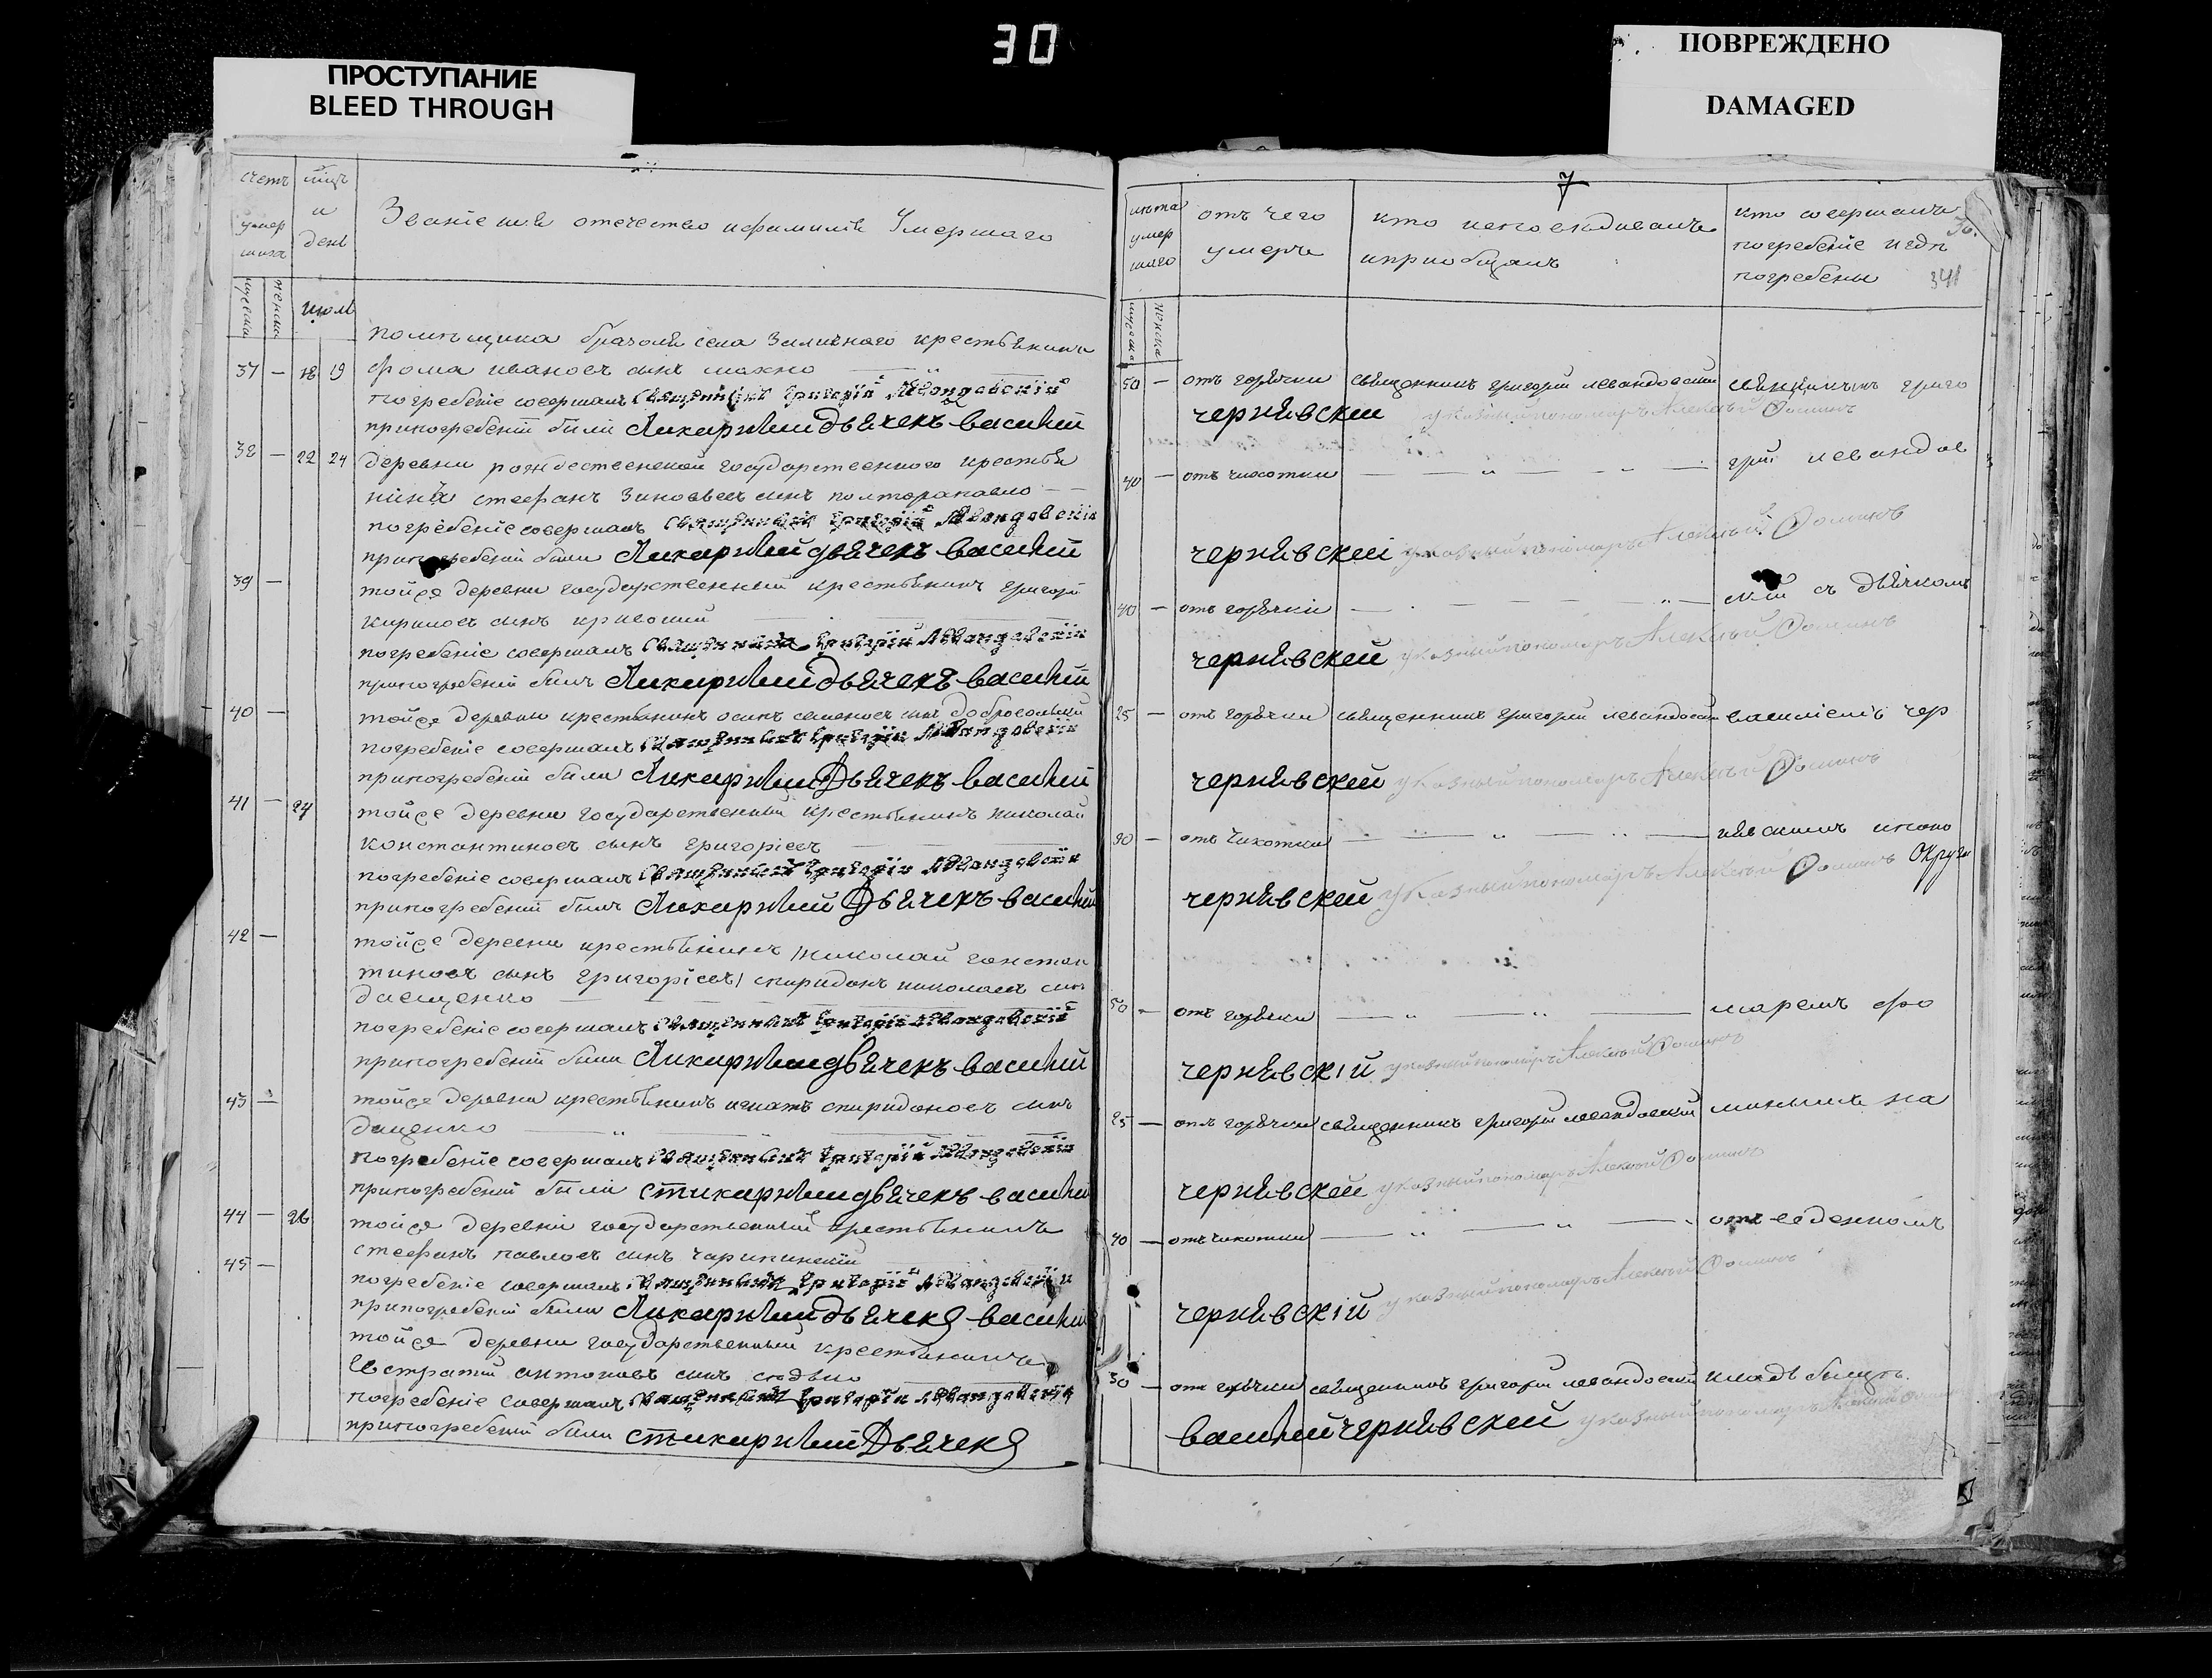 30
ПРОСТУПАНИЕ
BLEED THROUGH
ПОВРЕЖДЕНО
DAMAGED
счетъ
умер
шихъ
мцъ
и
день
Званіе имя отечество ифамилія Умершаго
июля
помѣщика села крестьянинъ
37 — 18 19 фома ивановъ сынъ махно
погребеніе совершалъ Священникъ Григорій Левандовскій
припогребеніи были дьячекъ василий
38 — 22 24 деревни рождественской государственного крестья
стефанъ зиновьевъ сынъ полторапавло
погребеніе совершалъ Священникъ Григорій Левандовскій
припогребеніи были дьячекъ василий
39 — тойже деревни государственный крестьянинъ григорій
кириловъ сынъ
погребеніе совершалъ Священникъ Григорій Левандовскій
припогребеніи были дьячекъ василий
40 — тойже деревни крестьянинъ осипъ семеновъ сынъ
погребеніе совершалъ Священникъ Григорій Левандовскій
припогребеніи были Дьячекъ василий
41 — 24 тойже деревни государственный крестьянинъ николай
константиновъ сынъ григорієвъ
погребеніе совершалъ Священникъ Григорій Левандовскій
припогребеніи были Дьячекъ василий
42 — тойже деревни крестьянинъ /николай констан
тиновъ сынъ григорієвъ/ спиридонъ николаевъ сынъ
погребеніе совершалъ Священникъ Григорій Левандовскій
припогребеніи были дьячекъ василий
43 — тойже деревни крестьянинъ игнатъ спиридоновъ сынъ
даценко
погребеніе совершалъ Священникъ Григорій Левандовскій
припогребеніи были дьячекъ василий
44 — 26 тойже деревни государственный крестьянинъ
стефанъ павловъ сынъ
45 —
погребеніе совершалъ Священникъ Григорій Левандовскій
припогребеніи были дьячекъ василий
тойже деревни государственный крестьянинъ
антоновъ сынъ
погребеніе совершалъ Священникъ Григорій Левандовскій
припогребеніи были Дьячекъ
7
лѣта
умер
шаго
отъ чего
умеръ
кто исповѣдивалъ
иприобщалъ
кто совершалъ
погребеніе игдѣ
погребены
341
50 — отъ горячки священникъ григорій левандовский священникъ григо
чернявский указныйпономаръ Алексѣй Фоминъ
40 — отъ чахотки левандов
чернявский указныйпономаръ Алексѣй Фоминъ
40 — отъ горячки съ дьячкомъ
чернявский указныйпономаръ Алексѣй Фоминъ
25 — отъ горячки священникъ григорій левандовский василіемъ чер
чернявский указныйпономаръ Алексѣй Фоминъ
отъ чахотки нявскимъ ипоно
чернявский указныйпономаръ Алексѣй Фоминъ
50 — отъ горячки маремъ фо
чернявскій указныйпономаръ Алексѣй Фоминъ
25 — отъ горячки священникъ григорій левандовский минымъ на
чернявский указныйпономаръ Алексѣй Фоминъ
40 — отъ чахотки отведенномъ
чернявскій указныйпономаръ Алексѣй Фоминъ
30 — отъ горячки священникъ григорій левандовский кладбыщѣ.
василийчернявский указныйпономаръ